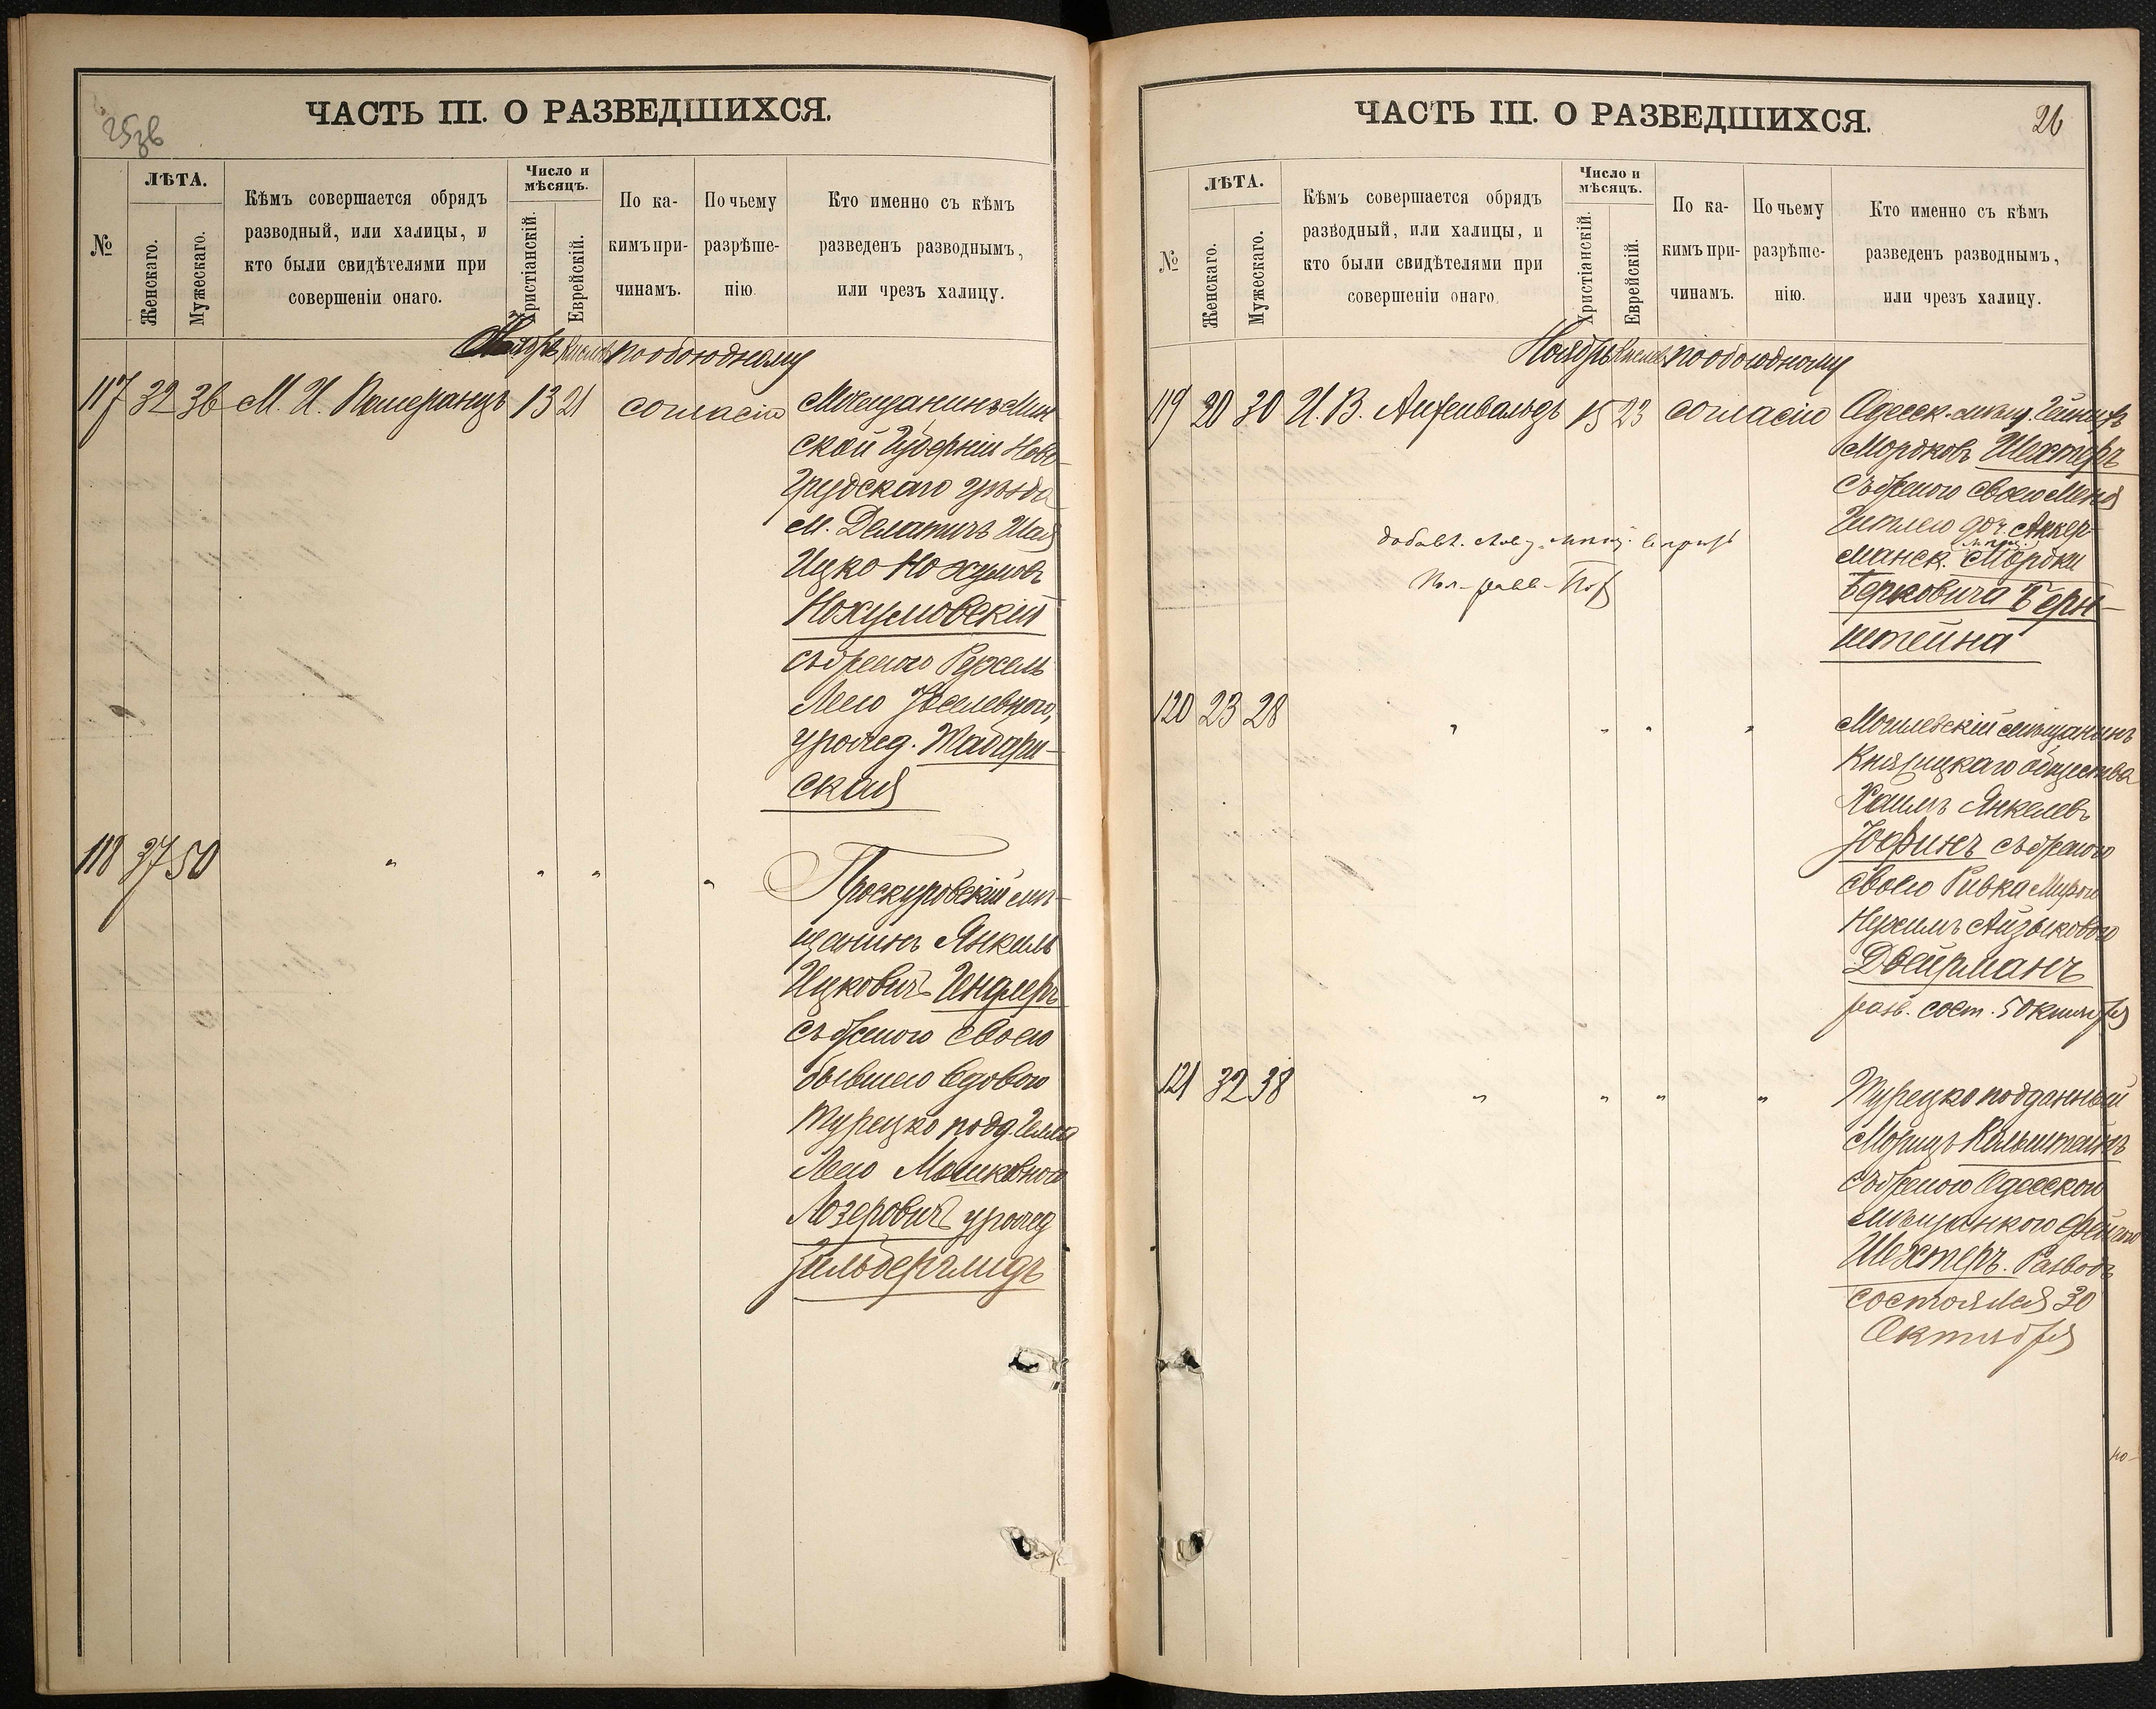 25зв
ЧАСТЬ III. О РАЗВЕДШИХСЯ.
№
ЛѢТА.
Женскаго.
Мужескаго.
Кѣмъ совершается обрядъ
разводный, или халицы, и
кто были свидѣтелями при
совершеніи онаго.
Число и
мѣсяцъ.
Христіанскій.
Еврейскій.
По ка-
кимъ при-
чинамъ.
По чьему
разрѣше-
нію.
Кто именно съ кѣмъ
разведенъ разводнымъ,
или чрезъ халицу.
Ноябрь Кислевъ по обоюдному
117 32 36 М. И. Померанцъ 13 21 согласію Мѣщанинъ Мин
ской Губерніи Ново-
грудскаго уѣзда
м. Делятичъ Шая
Ицко Нохумовъ
Нохумовскій
съ женою Рухель
Леею Іоселевною,
урожд.
ская
118 37 50 " " " " Проскуровскій мѣ-
щанинъ Янкель
Ицковичъ Гендлеръ
съ женою своею
бывшею вдовою
Турецко подд.
Леею Мошковною
Лозеровичъ урожд
Зильберглидъ
ЧАСТЬ III. О РАЗВЕДШИХСЯ.
26
№
ЛѢТА.
Женскаго.
Мужескаго.
Кѣмъ совершается обрядъ
разводный, или халицы, и
кто были свидѣтелями при
совершеніи онаго.
Число и
мѣсяцъ.
Христіанскій.
Еврейскій.
По ка-
кимъ при-
чинамъ.
По чьему
разрѣше-
нію.
Кто именно съ кѣмъ
разведенъ разводнымъ,
или чрезъ халицу.
Ноябрь Кислевъ по обоюдному
119 20 30 И. В. 15 23 согласію Одесск. мѣщ.
Мордковъ Шехтеръ
съ женою своею
доч. Аккер-
манск. мѣщ. Мордки
Берковича Берн-
штейна
120 23 28 " " " " Могилевскій мѣщанинъ
Княжицкаго общества
Хаимъ Янкелевъ
Іофинъ съ женою
своею Ривка
Айзыковою
Двейрманъ
разв. сост. 5 Октября
121 32 38 " " " " Турецко подданный
Морицъ
съ женою Одесскою
мѣщанкою
Шехтеръ. Разводъ
состоялся 30
Октября